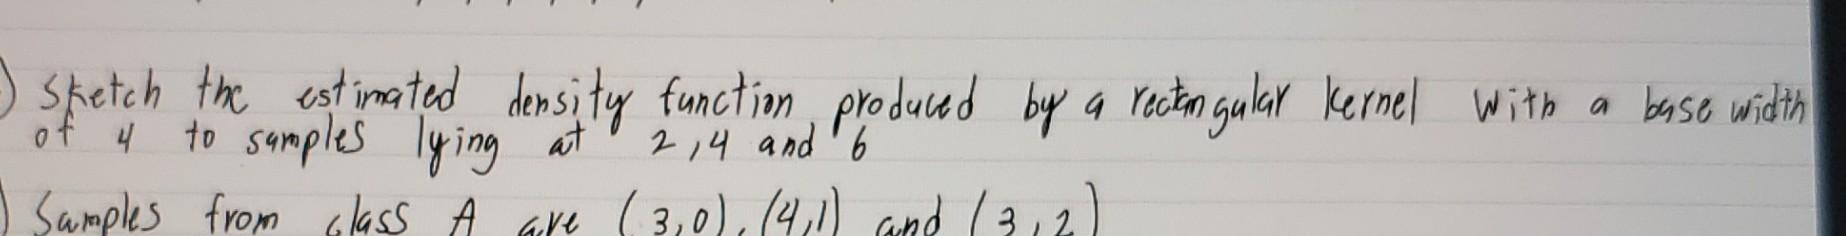 ) Sketch the estimated density function produced by a rectangular kernel with a base width
of 4 to samples lying at 2,4 and 6
) Samples from class A are (3,0), (4,1) and (3,2)